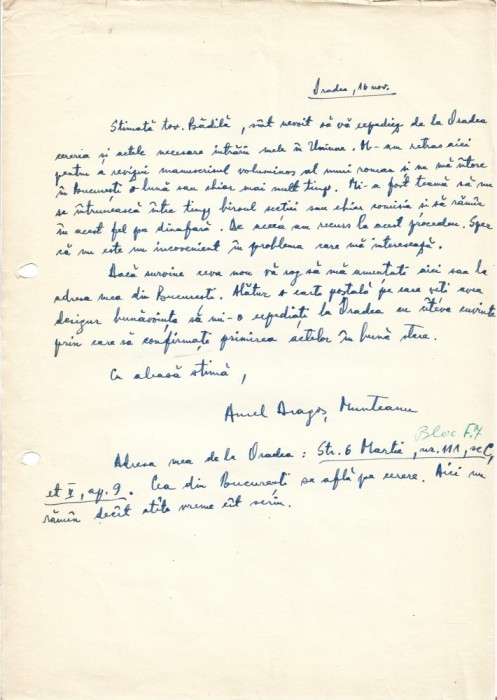 Oradea, 16 nov.
Stimată tov. Bădilă, sînt nevoit să vă expediez de la Oradea
cererea și actele necesare intrării mele în Uniune. M-am retras aici
pentru a revizui manuscrisul voluminos al unui roman și nu mă întorc
în București o lună sau chiar mai mult timp. Mi-a fost teamă să nu
se întrunească între timp biroul secției sau chiar comisia și să rămîn
în acest fel pe dinafară. De aceea am recurs la acest procedeu. Sper
că nu este un incovenient în problema care mă interesează.
Dacă survine ceva nou vă rog să mă anuntati aici sau la
adresa mea din București. Alătur o carte poștală pe care veți avea
desigur bunăvoința să mi-o expediați la Oradea cu cîteva cuvinte
prin care să confirmați primirea actelor în bună stare.
Cu aleasă stimă,
Aurel Dragoș Munteanu
Bloc F.7
Adresa mea de la Oradea: Str. 6 Martie, nr. 111, sc C,
et V, ap. 9. Cea din București se află pe cerere. Aici nu
rămîn decît atîta vreme cît scriu.